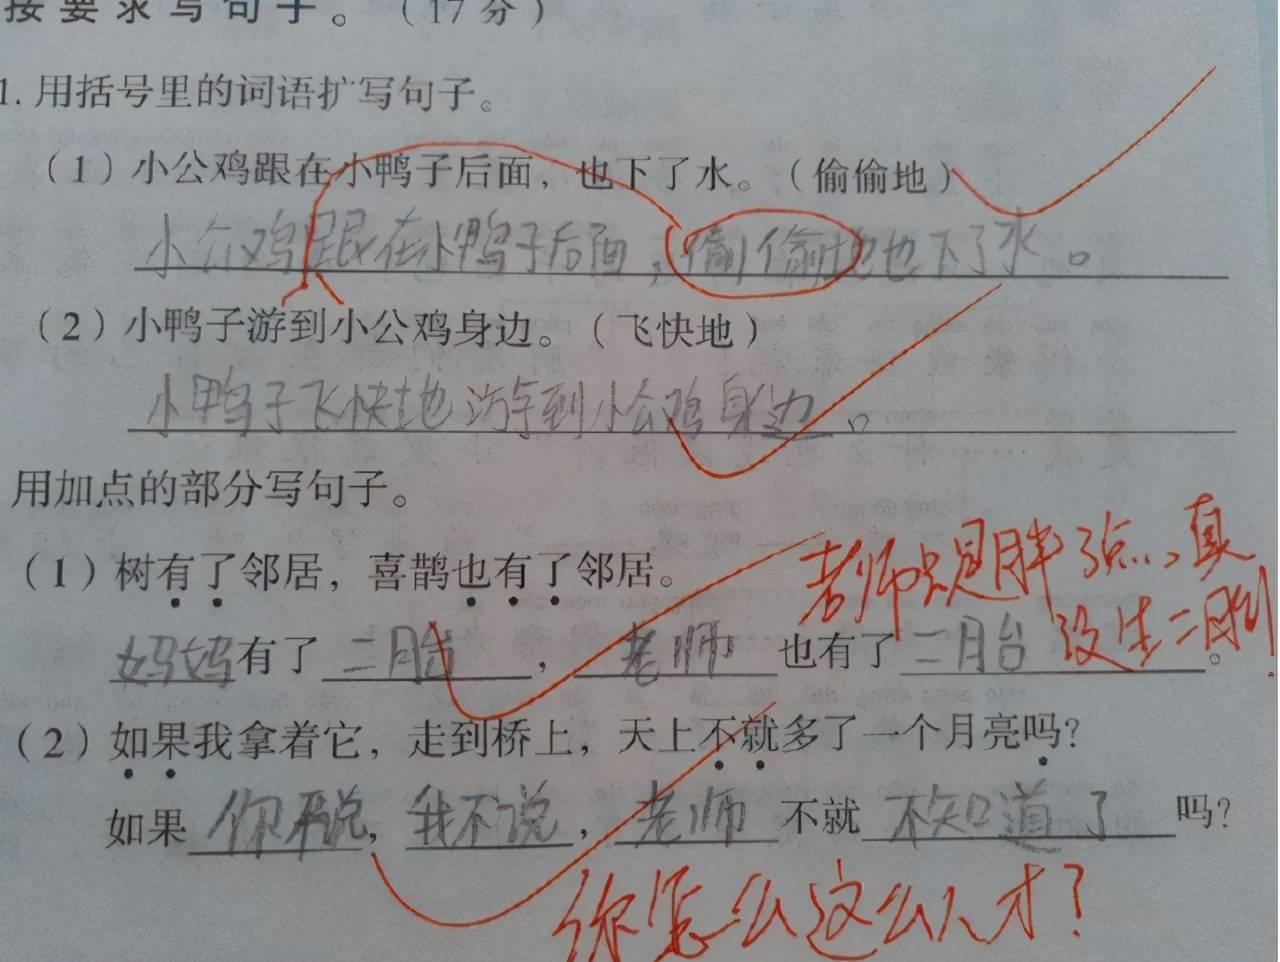 按要求写句子。（17分）
1. 用括号里的词语扩写句子。
（1）小公鸡跟在小鸭子后面，也下了水。（偷偷地）
小公鸡跟在小鸭子后面，偷偷地也下了水。
（2）小鸭子游到小公鸡身边。（飞快地）
小鸭子飞快地游到小公鸡身边。
用加点的部分写句子。
（1）树有了邻居，喜鹊也有了邻居。
老师只是胖了点..，真
没生二胎
妈妈有了二胎，老师也有了二胎。
（2）如果我拿着它，走到桥上，天上不就多了一个月亮吗？
如果你不说，我不说，老师不就不知道了吗？
你怎么这么人才？